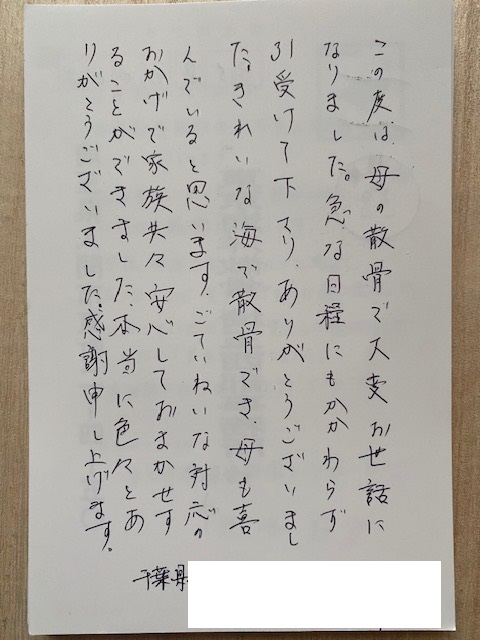 この度は、母の散骨で大変お世話に
なりました。急な日程にもかかわらず
引受けて下さり、ありがとうございまし
た。きれいな海で散骨でき、母も喜
んでいると思います。ごていねいな対応の
おかげで家族共々安心しておまかせす
ることができました。本当に色々とあ
りがとうございました。感謝申し上げます。
千葉県